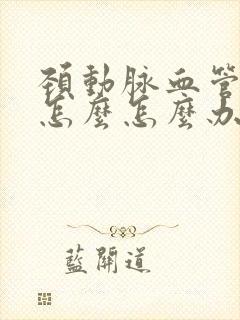 頸動脉血管
怎麼怎麼办
藍開道